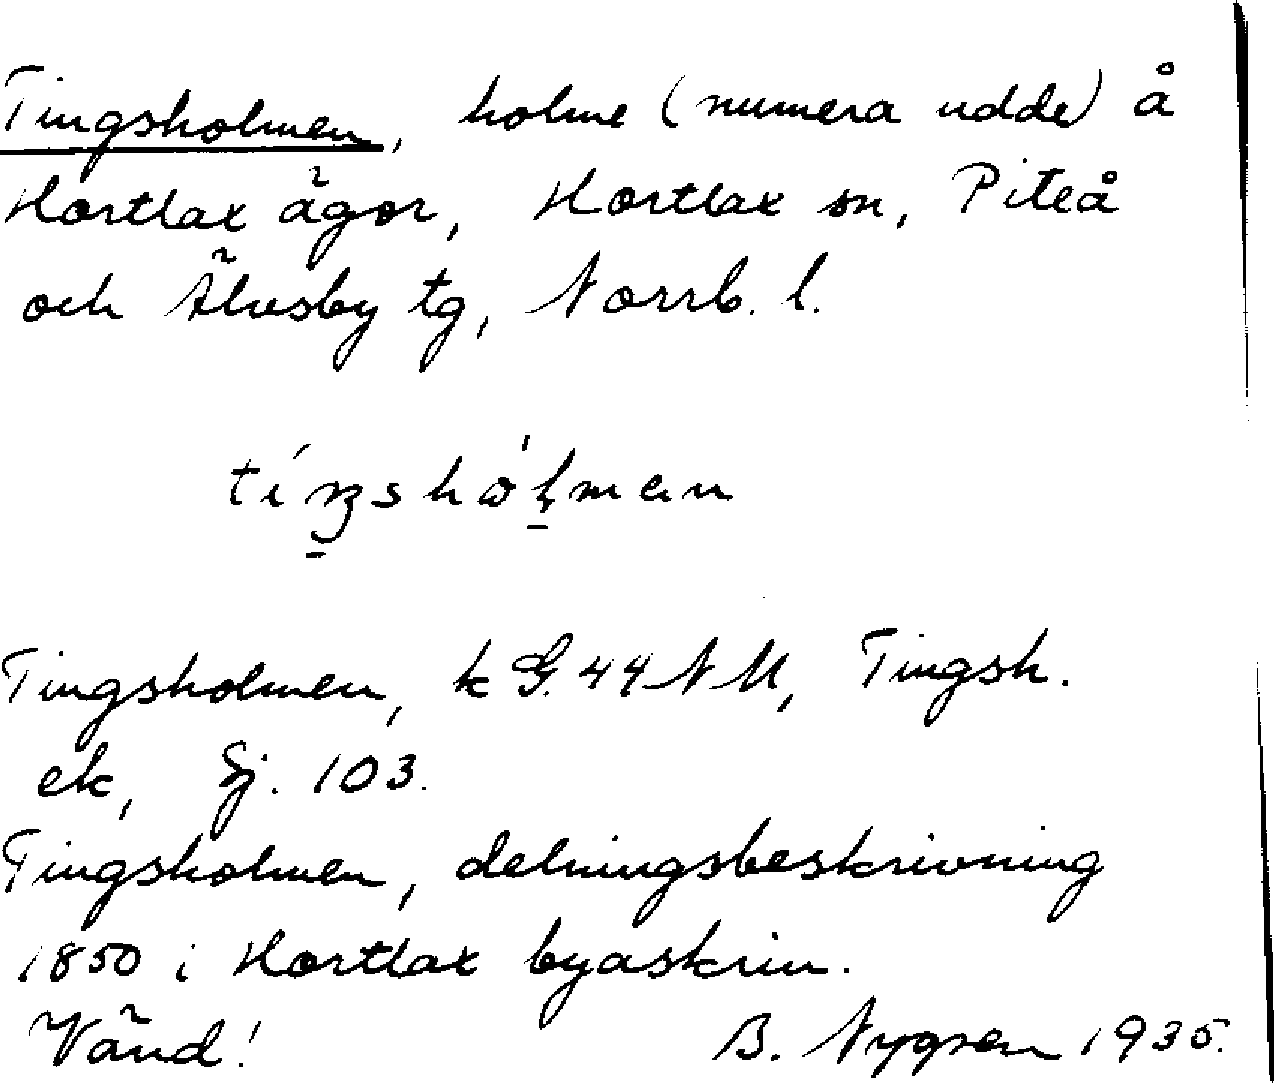 Tingsholmen, holme (numera udde) å
Hortlax ägor, Hortlax sn, Piteå
och Älvsby tg, Norrb. l.
tíŋshól̥men
Tingsholmen, k G. 44 NM, Tingsh.
ek, Sj. 103.
Tingsholmen, delningsbeskrivning
1850 i Hortlax byaskrin.
Vänd! B. Nygren 1935.